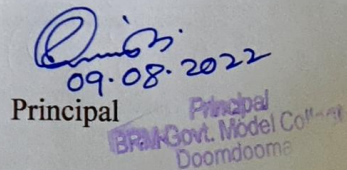 09.08.2022
Principal
Principal
BRM Govt. Model College
Doomdooma